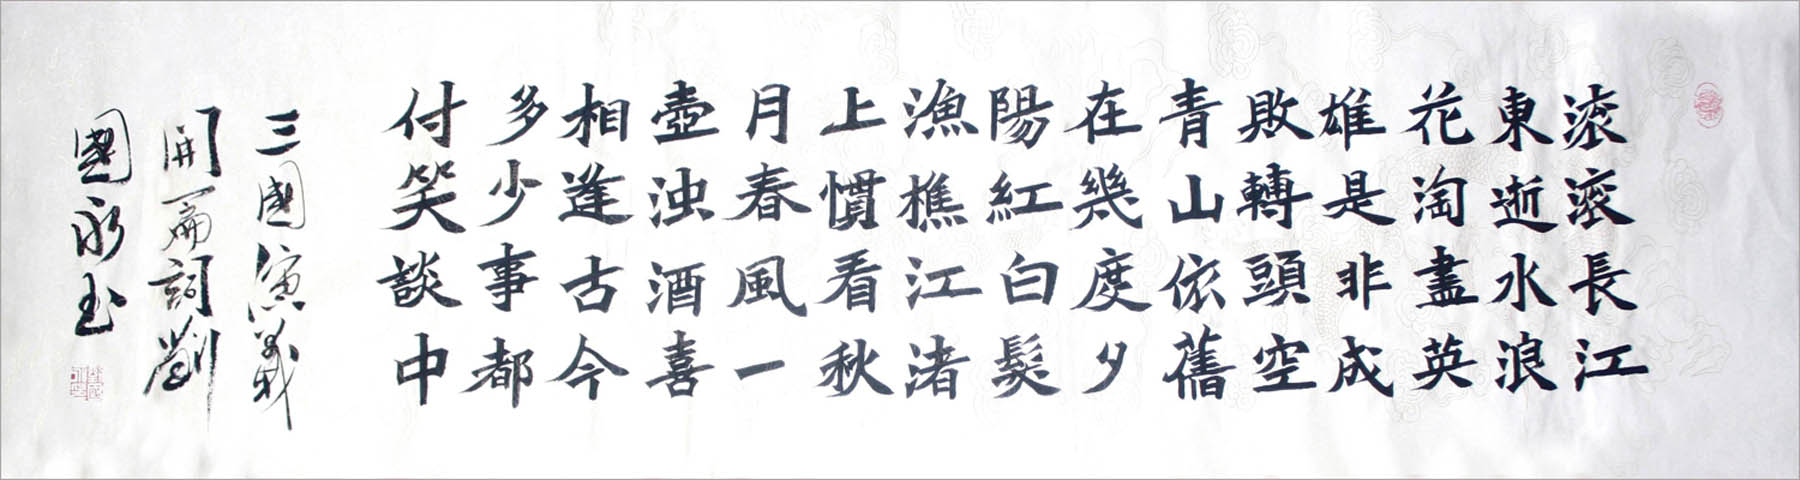 滚滚長江
東逝水浪
花淘盡英
雄是非成
敗轉頭空
青山依舊
在幾度夕
陽紅白髮
漁樵江渚
上慣看秋
月春風一
壺浊酒喜
相逢古今
多少事都
付笑談中
三國演義
開篇詞劉
國永玉